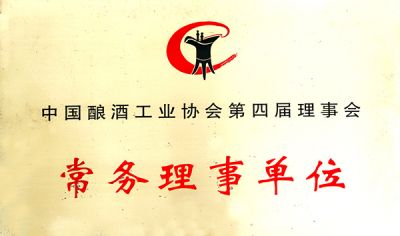 中国酿酒工业协会第四届理事会
常务理事单位